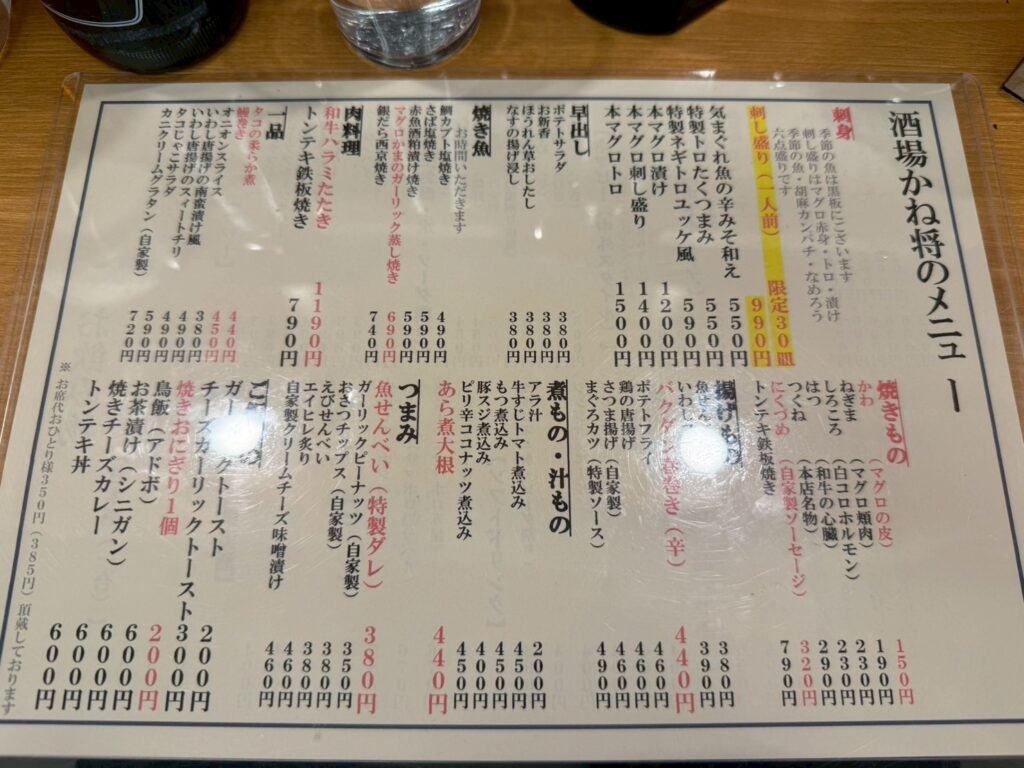 酒場かね将のメニュー
刺身
季節の魚は黒板にございます
刺し盛りはマグロ赤身・トロ・漬け
季節の魚・胡麻カンパチ・なめろう
六点盛りです
刺し盛り（一人前） 限定30組 990円
気まぐれ魚の辛みそ和え 550円
特製トロたくつまみ 550円
特製ネギトロユッケ風 590円
本マグロ漬け 1200円
本マグロ刺し盛り 1400円
本マグロトロ 1500円
早出し
ポテトサラダ 380円
お新香 380円
ほうれん草おしたし 380円
なすの揚げ浸し 380円
焼き魚
お時間いただきます
鯛カブト塩焼き 490円
さば塩焼き 590円
赤魚酒粕漬け焼き 590円
マグロかまのガーリック蒸し焼き 690円
銀だら西京焼き 740円
肉料理
和牛ハラミたたき 1190円
トンテキ鉄板焼き 790円
一品
タコの柔らか煮 440円
鰻巻き 450円
オニオンスライス 380円
いわし唐揚げの南蛮漬け風 490円
いわし唐揚げのスィートチリ 490円
タコじゃこサラダ 590円
カニクリームグラタン（自家製） 720円
焼きもの
かわ （マグロの皮） 150円
ねぎま （マグロ頬肉） 190円
しろころ （白コロホルモン） 230円
はつ （和牛の心臓） 230円
つくね （本店名物） 290円
にくづめ （自家製ソーセージ） 320円
トンテキ鉄板焼き 790円
揚げもの
380円
390円
バクダン春巻き（辛） 440円
ポテトフライ 460円
鶏の唐揚げ 460円
さつま揚げ（自家製） 460円
まぐろカツ（特製ソース） 490円
煮もの・汁もの
アラ汁 200円
牛すじトマト煮込み 450円
もつ煮込み 450円
豚スジ煮込み 400円
ピリ辛ココナッツ煮込み 450円
あら煮大根 440円
つまみ
魚せんべい（特製ダレ） 380円
ガーリックピーナッツ（自家製） 350円
おさつチップス（自家製） 380円
えびせんべい 380円
エイヒレ炙り 460円
自家製クリームチーズ味噌漬け 460円
ガーリックトースト 200円
チーズガーリックトースト 300円
焼きおにぎり1個 200円
鳥飯（アドボ） 600円
お茶漬け（シニガン） 600円
焼きチーズカレー 600円
トンテキ丼 600円
※お席代おひとり様350円（385円）頂戴しております